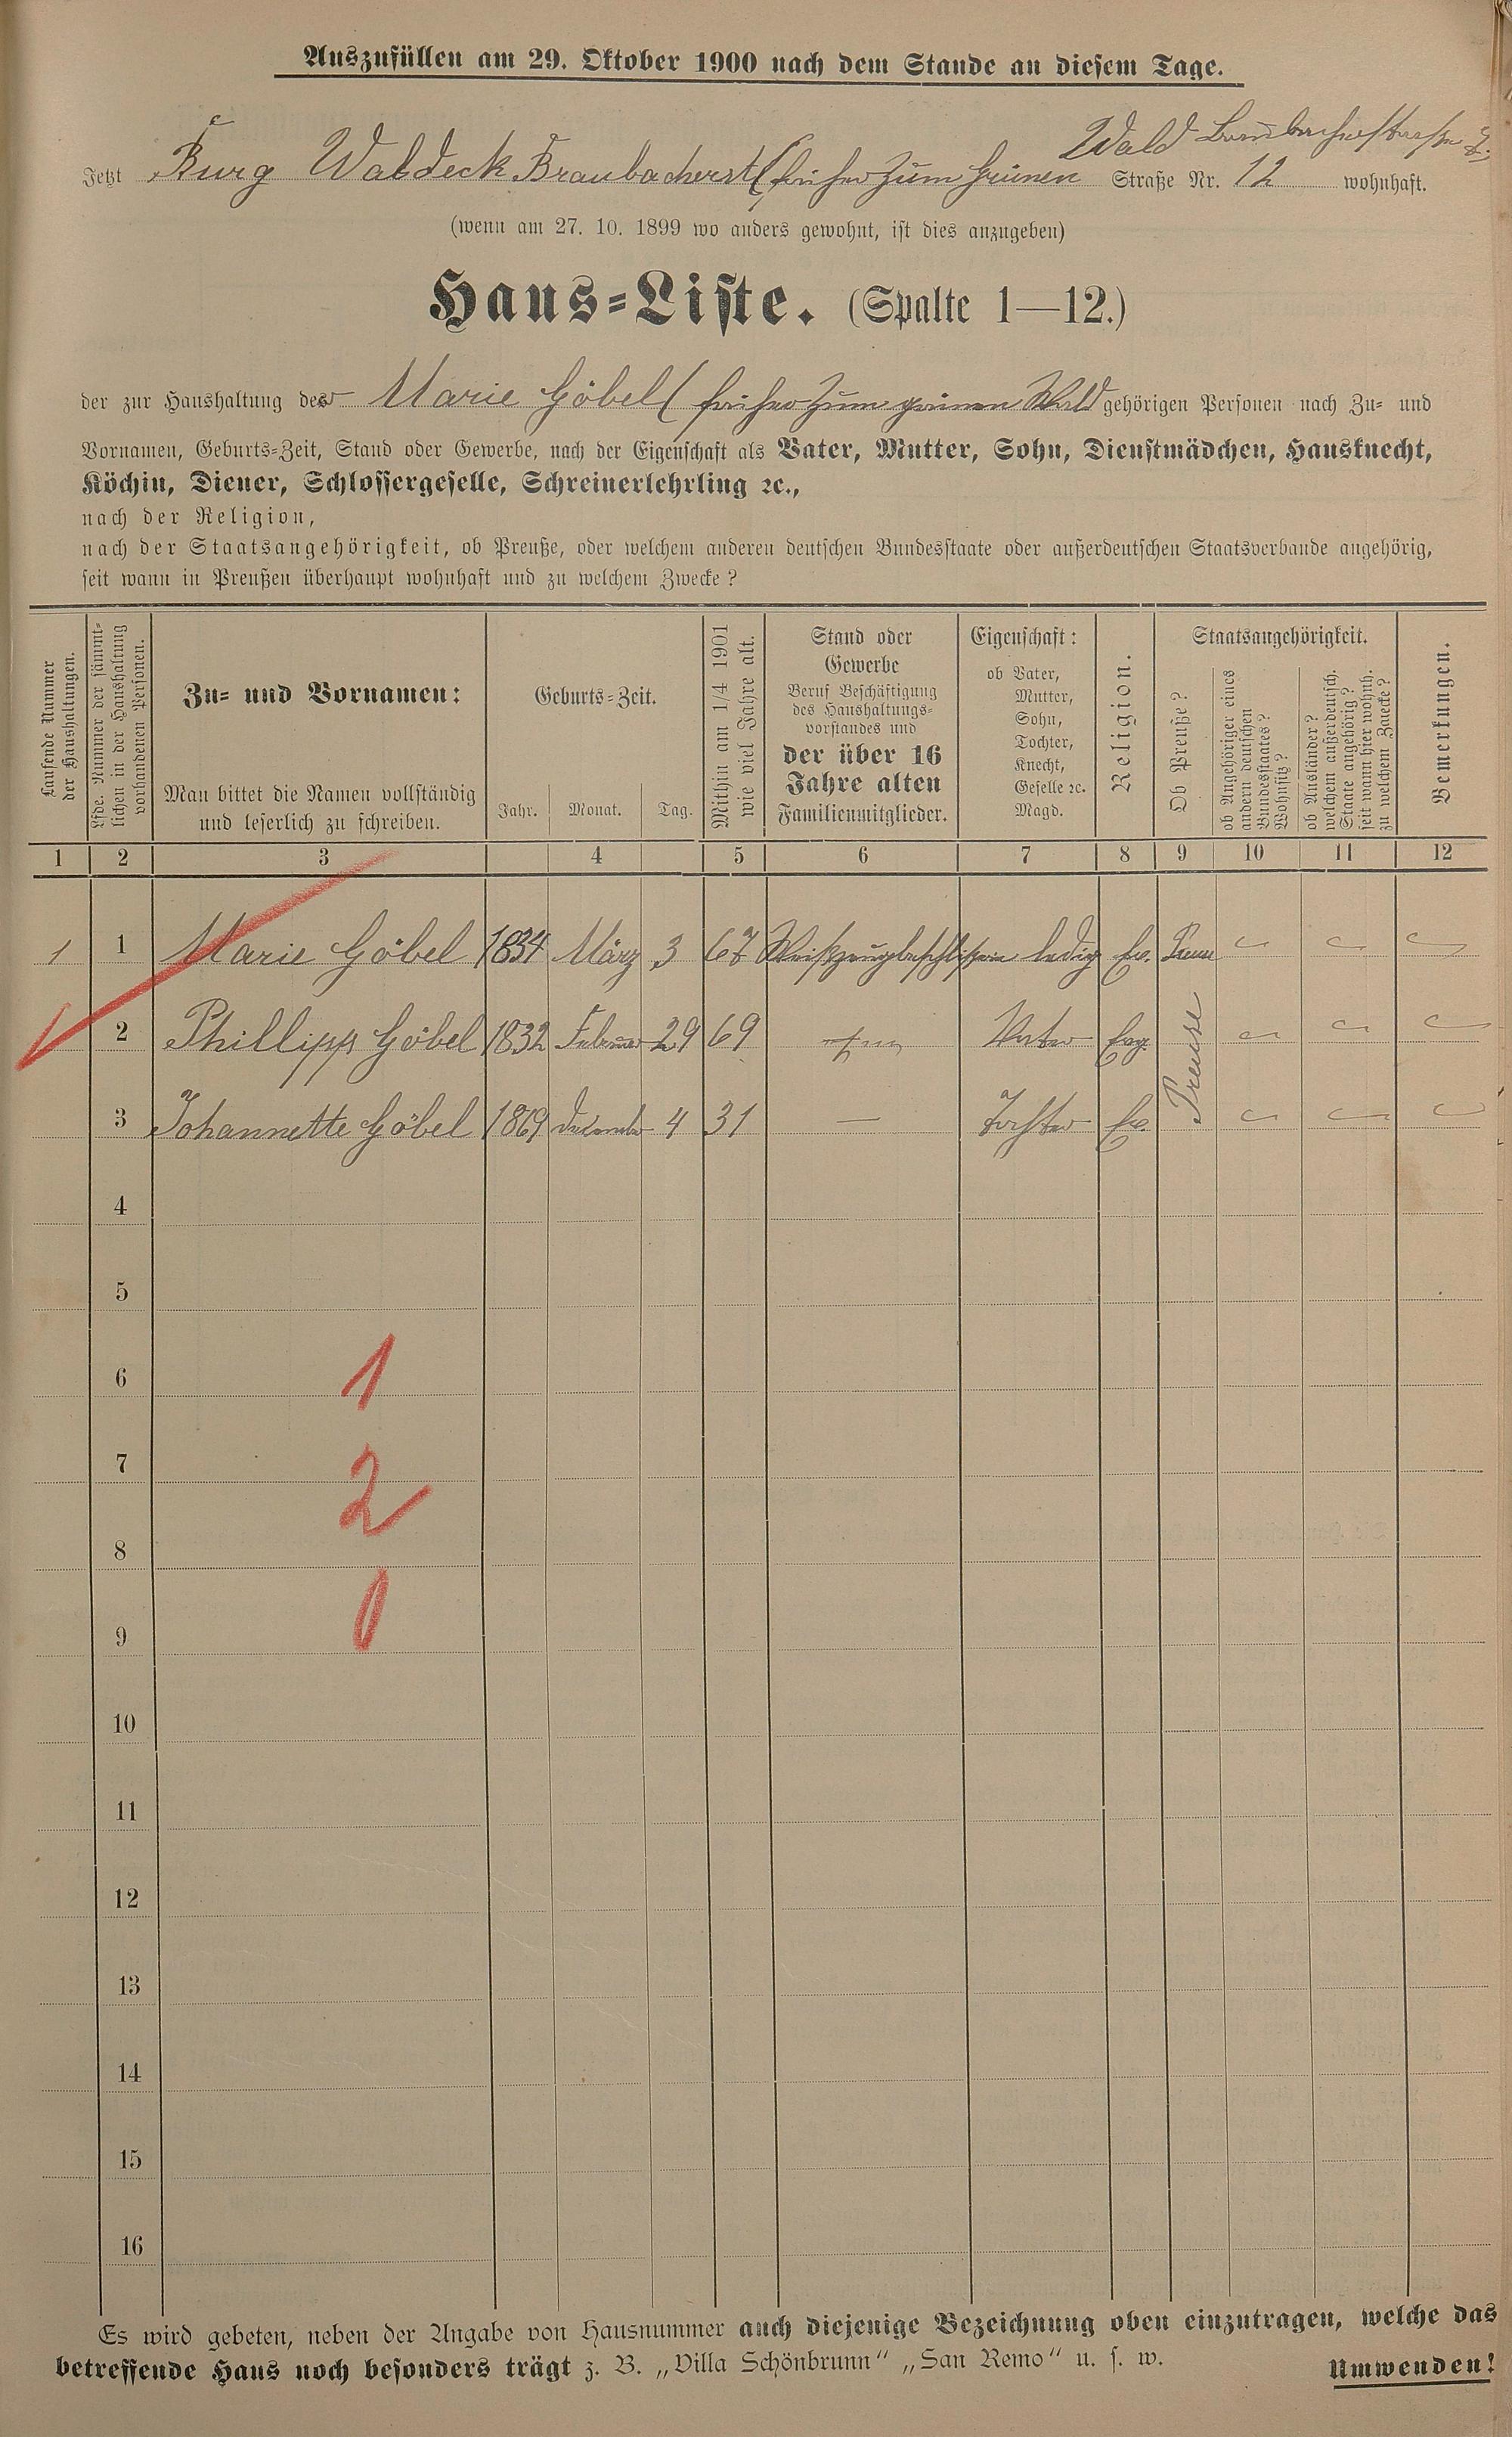 Auszufüllen am 29. Oktober 1900 nach dem Stande an diesem Tage.
Wald
Jetzt Burg Waldeck Braubacherst (früher zum grünen Straße Nr. 12 wohnhaft.
(wenn am 27. 10. 1899 wo anders gewohnt, ist dies anzugeben)
Haus-Liste. (Spalte 1—12.)
der zur Haushaltung der Marie Göbel (früher zum grünen Wald gehörigen Personen nach Zu- und
Vornamen, Geburts-Zeit, Stand oder Gewerbe, nach der Eigenschaft als Vater, Mutter, Sohn, Dienstmädchen, Hausknecht,
Köchin, Diener, Schlossergeselle, Schreinerlehrling ꝛc.,
nach der Religion,
nach der Staatsangehörigkeit, ob Preuße, oder welchem anderen deutschen Bundesstaate oder außerdeutschen Staatsverbande angehörig,
seit wann in Preußen überhaupt wohnhaft und zu welchem Zwecke?
Laufende Nummer
der Haushaltungen.
Lfde. Nummer der sämmt-
lichen in der Haushaltung
vorhandenen Personen.
Zu- und Vornamen:
Man bittet die Namen vollständig
und leserlich zu schreiben.
Geburts-Zeit.
Jahr. Monat. Tag.
Mithin am 1/4 1901
wie viel Jahre alt.
Stand oder
Gewerbe
Beruf Beschäftigung
des Haushaltungs-
vorstandes und
der über 16
Jahre alten
Familienmitglieder.
Eigenschaft:
ob Vater,
Mutter,
Sohn,
Tochter,
Knecht,
Geselle ꝛc.
Magd.
Religion.
Staatsangehörigkeit.
Ob Preuße?
ob Angehöriger eines
andern deutschen
Bundesstaates?
Wohnsitz?
ob Ausländer?
welchem außerdeutsch.
Staate angehörig?
seit wann hier wohnh.
zu welchem Zwecke?
Bemerkungen.
1 2 3 4 5 6 7 8 9 10 11 12
1 1 Marie Göbel 1834 März 3 67 Weißzeugbeschließerin ledig Ev. Preuse
2 Phillipp Göbel 1832 Februar 29 69 Vater Evg. Preuse
3 Johannette Göbel 1869 Dezember 4 31 — Tochter Ev.
4
5
6
1
7
2
8
0
9
10
11
12
13
14
15
16
Es wird gebeten, neben der Angabe von Hausnummer auch diejenige Bezeichnung oben einzutragen, welche das
betreffende Haus noch besonders trägt z. B. „Villa Schönbrunn" „San Remo" u. s. w.
Umwenden!